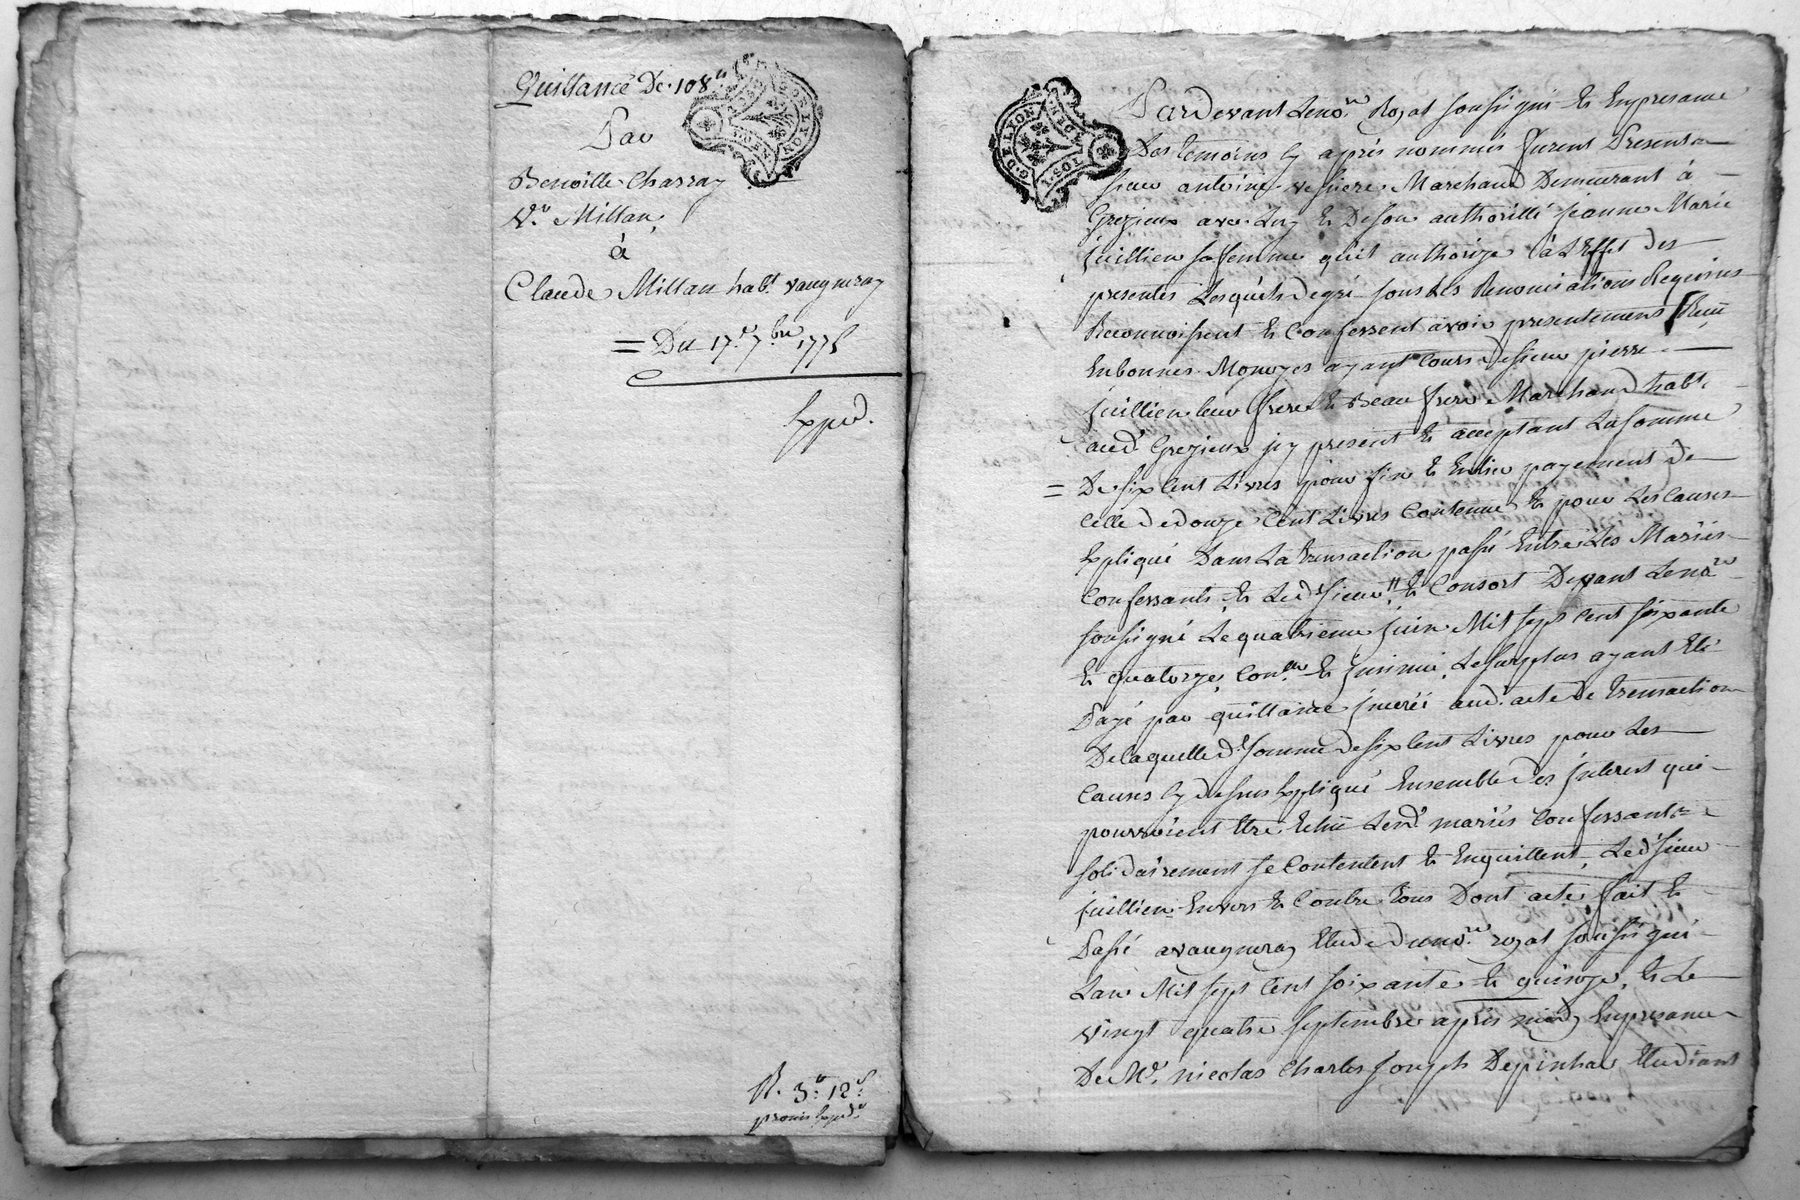 Quittance De 108ᵗᵗ
Par
Benoitte Charray
Vᵉ Millan,
à
Claude Millan habᵗ vaugneray
= Du 17ᵉ 7ᵇʳᵉ 1775
Expᵈ.
R. 3ᵗᵗ 12ˢ
promis Expedᵉ
G. DE LYON
Pardevant Le noʳᵉ Royal soussigné Et En presance
Des temoins Cy après nommés furent Presents
sieur antoine Marchand Demeurant à
Grezieux avec Luy Et De son authoritté jeanne Marie
juillien sa femme qu'il authorize à L'Effet Des
presentes Lesquels de gré sous Les Renonciations Requises
Reconnoissent Et Confessent avoir presentement Reçu
En bonnes Monoyes ayant Cours de sieur pierre
juillien leur frere Et Beau frere Marchand habᵗ
audᵗ Grezieux jcy present Et acceptant La somme
= De six Cent Livres pour fin Et Entier payement de
Celle de douze Cent Livres Contenue Et pour Les Causes
Expliqué Dans La transaction passé Entre Les Mariés
Confessants Et Ledᵗ sieur Et Consort Devant Le noʳᵉ
soussigné Le quatrieme juin Mil sept Cent soixante
Et quatorze, Conᵗʳᵒˡˡᵉ Et jnsinué, Le surplus ayant Eté
Payé par quittance jnseréé aud. acte De transaction
De laquelle dᵗ somme de six Cent Livres pour Les
Causes Cy dessus Expliqué Ensemble des jnterest qui
pourroient Etre Echu Lesdᵗ mariés Confessants
solidairement se Contentent Et En quittent, Ledᵗ sieur
juillien Envers Et Contre tous Dont acte fait Et
Passé a vaugneray Etude du noʳᵉ royal soussigné
L'an Mil sept Cent soixante Et quinze, Et Le
vingt quatre septembre après midy En presance
De Mᵉ. nicolas Charles joseph Depinhac Etudiant